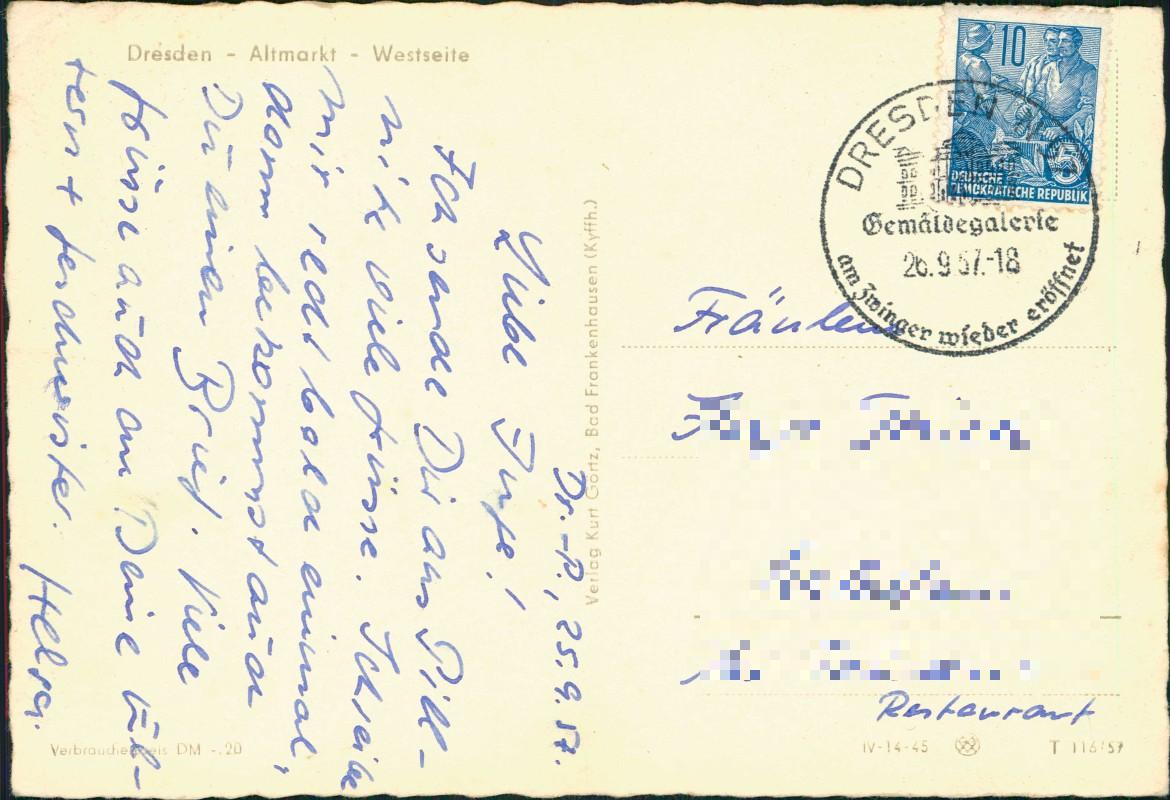 Dresden - Altmarkt - Westseite
Dr.-P., 25.9.57.
Liebe Inge!
Ich sende Dir aus Pill-
nitz viele Grüsse. Schreibe
mir recht bald einmal,
dann bekommst auch
Du einen Brief. Viele
Grüsse auch an Deine El-
tern + Geschwister. Helga.
Verbraucherpreis DM -.20
Verlag Kurt Gortz, Bad Frankenhausen (Kyffh.)
10
5
DEUTSCHE
DEMOKRATISCHE REPUBLIK
DRESDEN
Gemäldegalerie
26.9.57.-18
am Zwinger wieder eröffnet
Fräulein
Restaurant
IV-14-45
T 116/57